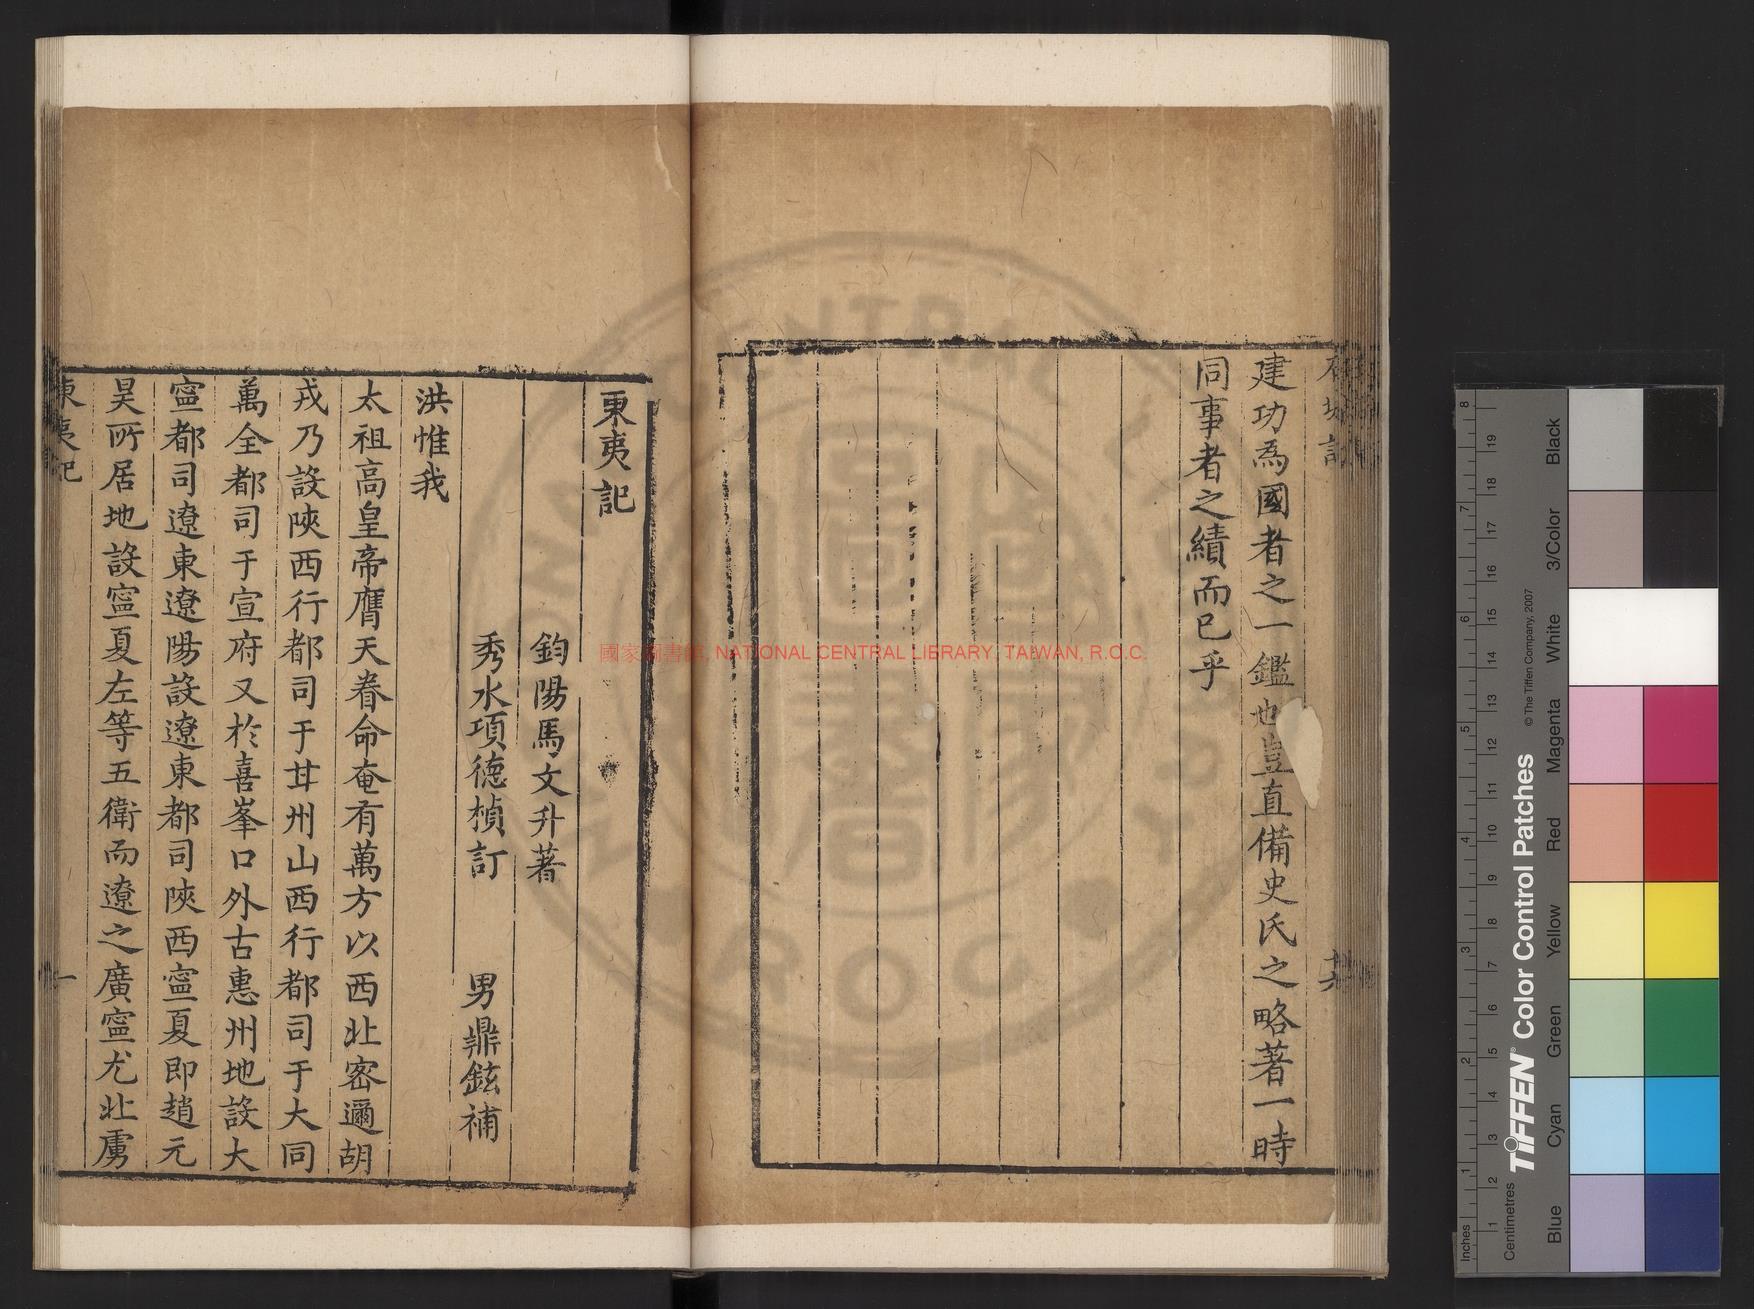 建功為國者之一鑑也豈直備史氏之略著一時
同事者之績而已乎
東夷記
鈞陽馬文升著
秀水項德楨訂 男鼎鉉補
洪惟我
太祖高皇帝膺天眷命奄有萬方以西北密邇胡
戎乃設陝西行都司于甘州山西行都司于大同
萬全都司于宣府又於喜峯口外古惠州地設大
寧都司遼東遼陽設遼東都司陝西寧夏即趙元
昊所居地設寧夏左等五衛而遼之廣寧尤北虜
東夷記 一
國家圖書館, NATIONAL CENTRAL LIBRARY, TAIWAN, R.O.C.
TIFFEN® Color Control Patches
© The Tiffen Company, 2007
Inches
Centimetres
Blue Cyan Green Yellow Red Magenta White 3/Color Black